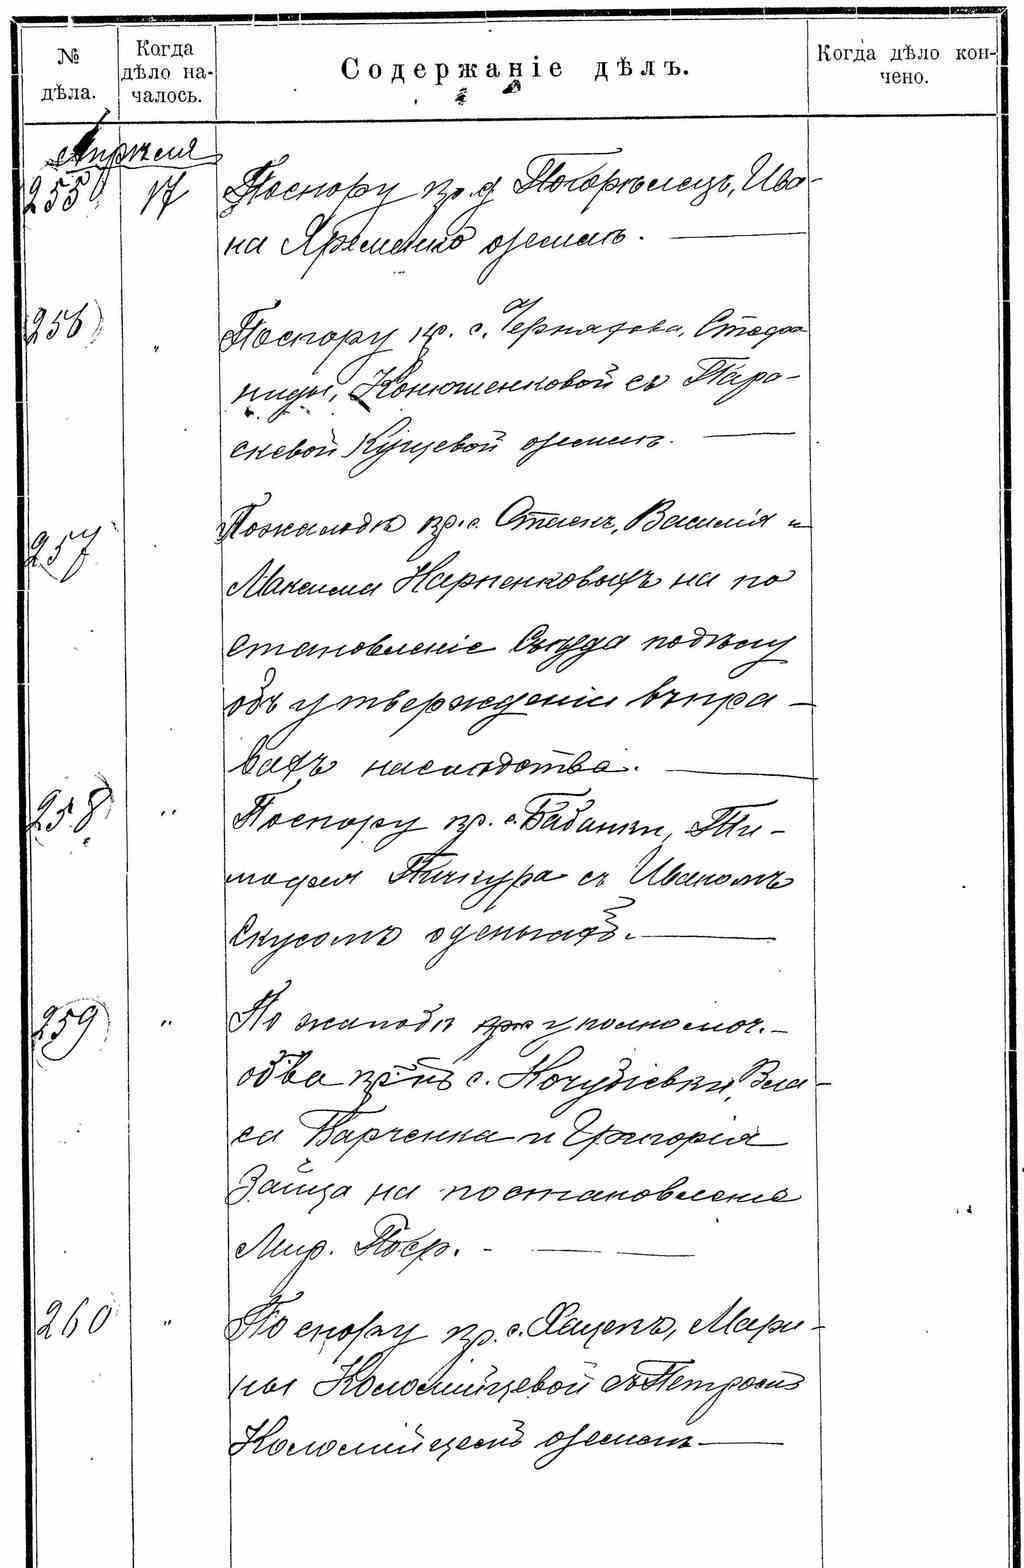 № дѣла.
Когда дѣло на-
чалось.
Содержаніе дѣлъ.
Когда дѣло кон-
чено.
Апрѣля
255 17 По спору кр. д Погорѣлецъ, Ива-
на Яременко о землѣ.
256 " По спору кр. с. Чернятова, Стефа
ниды, Конюшенковой съ Пара-
скевой Куцевой о землѣ.
257 По жалобѣ кр. с. Стаекъ, Василія и
Максима Карпенковыхъ на по
становленіе Съѣзда по дѣлу
объ утвержденіи въ пра-
вахъ наслѣдства.
258 " По спору кр. с. Бабанки, Ти-
мофея Тичкура съ Иваномъ
Скусомъ о деньгахъ.
259 " По жалобѣ уполномоч.
об-ва кр-нъ с. Кочубіевки, Вла-
са Барченка и Григорія
Зайца на постановленіе
Мир. Поср.
260 " По спору кр. с. Хащевъ, Мари-
ны Коломійцевой съ Петромъ
Коломійцемъ о землѣ